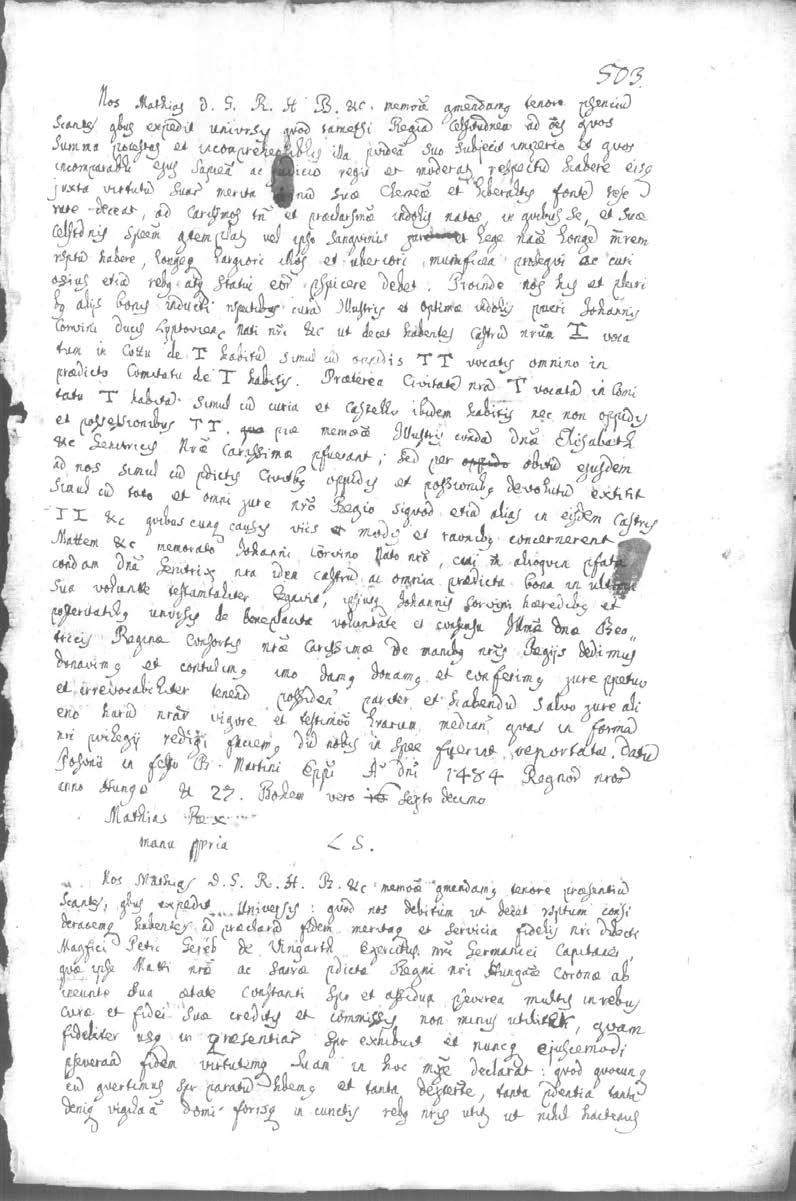 503.
Nos Mathias D. G. R. H. B. &c. memoæ gmendamq tenore pñciuȝ
Scantes qbus expedit universq quod tametsi Regia Celsitudnea ad oēs quos
Summa potestas et incomprehensiblis illa pvidea Suo Subjecit imperio et quos
incomparabli ejus Sapiea ac judicio regii et moderats respectu habere eisq
juxta virtutu Suar merita Suæ Clemeæ et liberaltis fonte rese
rare deceat, ad Carissimos tñ et præclarismæ indolis natos, in quibus Se, et Suæ
Celstdnis Spcem qtemplat vel ipso Sanguinis et lege naæ longe
rsptu habere, longeq largiori illos et uberiori munificea prosequi ac curi
osius etia rebq atq Statui eor pspicere debet. Proinde nos his et pluri
bq alijs bonis inducti rsputibus cura Illustris et optimæ indolis pueri Johannis
Corvini ducis Lyptovienc Nati nri &c ut decet habentes Castru nrum T voca
tum in Cottu de T habitu Simul cu oppidis TT vocatis omnino in
prædicto Comitatu de T habitis. Præterea Civitate nra T vocata in Comi
tatu T habita Simul cu curia et Castello ibidem habitis nec non oppidis
et possessionibus TT. piæ memoæ Illustris conda Dnæ Elisabeth
&c Genitricis Nræ Carissimæ pfuerant; Sed per obitu ejusdem
ad nos Simul cu pdictis Civitbq oppidis et possionibq devolutu extitit
Simul cu toto et omni jure nro Regio Siquod etia alias in eisdem Castris
TT &c quibuscunq causis viis et modis et raonibq concernerent
Mattem &c memorato Johanni Corvino Nato nro, cui alioquin pfata
condam dna Genitrix nra idem castru ac omnia prædicta bona in ultima
Sua volunte testamtaliter legavit, ejusq Johannis Corvini hæredibq et
posteritatibq univsis de beneplacita voluntate et consensu Illmæ dnæ Beo
tricis Reginæ Consortis nræ Carissimæ de manibq nris Regijs dedimus
donavimq et contulimq imo damq donamq et conferimq jure ppetuo
et irrevocabiliter tenend possiden pariter et habendu Salvo jure ali
eno haru nrar vigore et testimoo lrarum median, quas in forma
nri pvilegij redigi faciemq du nobis in Spee fuerint reportatæ. Datu
Posonii in festo B. Martini Eppi A dni 1484 Regnor nror
anno Hungæ &c 27. Bohem vero Sexto decimo
Mathias Rex
manu ppria L S.
Nos Mathias D. G. R. H. B. &c memoæ gmendamq tenore præsentiu
Scantes, qbus expedit Universis: quod nos debitum ut decet rsptum consi
deraoemq habentes ad præclara fidem meritaq et Servicia fidelis nri dilecti
Magfici Petri Gereb de Vingarth Exercitus nri Germanici Capitaei,
quæ ipse Matti nræ ac Sacræ pdicti Regni nri Hungaæ Coronæ ab
ineunte Sua ætate Constanti Spr et assidua pseverea multis in rebus
Curæ et fidei Suæ creditis et commissis non minus utiliter, quam
fideliter usq in præsentiar Spr exhibuit et nuncq ejuscemodi
pseveraa fidem virtutemq Suam in hoc mxe declarat: quod quocunq
eu qvertimus Spr paratu hbemq et tanta dexterte, tanta pdentia tanta
deniq vigilaa domi forisq in cunctis rebq nris utitr ut nihil hactenus